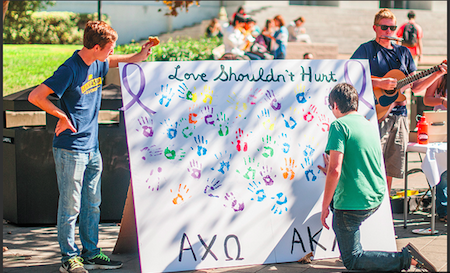 Love Shouldn't Hurt
AXΩ
AK